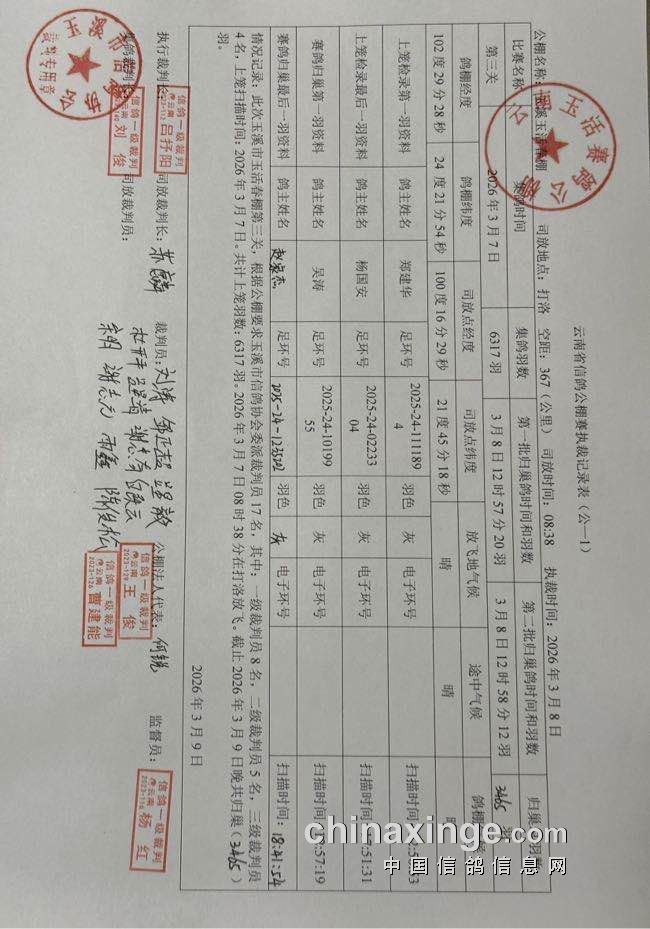 云南省信鸽公棚赛执裁记录表（公—1）
公棚名称：玉溪玉活春棚 司放地点：打洛 空距：367（公里） 司放时间：08:38 执裁时间：2026年3月8日
比赛名称 集鸽时间 集鸽羽数 第一批归巢鸽时间和羽数 第二批归巢鸽时间和羽数 归巢
第三关 2026年3月7日 6317羽 3月8日12时57分20羽 3月8日12时58分12羽 3465
鸽棚经度 鸽棚纬度 司放点经度 司放点纬度 放飞地气候 途中气候 鸽棚
102度29分28秒 24度21分54秒 100度16分29秒 21度45分18秒 晴 晴
上笼检录第一羽资料 鸽主姓名 郑建华 足环号 2025-24-1111894 羽色 灰 电子环号 扫描时间：
上笼检录最后一羽资料 鸽主姓名 杨国安 足环号 2025-24-0223304 羽色 灰 电子环号 扫描时间： 51:31
赛鸽归巢第一羽资料 鸽主姓名 吴涛 足环号 2025-24-1019955 羽色 灰 电子环号 扫描时间： :57:19
赛鸽归巢最后一羽资料 鸽主姓名 足环号 羽色 灰 电子环号 扫描时间：18:41:54
情况记录：此次玉溪市玉活春棚第三关，根据公棚要求玉溪市信鸽协会委派裁判员17名，其中：一级裁判员8名，二级裁判员5名，三级裁判员
4名，上笼扫描时间：2026年3月7日。共计上笼羽数：6317羽。2026年3月7日08时38分在打洛放飞，截止2026年3月9日晚共归巢（3465）
羽。
2026年3月9日
执行裁判长： 司放裁判长： 裁判员： 公棚法人代表： 监督员：
集鸽裁判长： 司放裁判员：
信鸽一级裁判
云南
刘俊
信鸽一级裁判
云南
信鸽一级裁判
云南
王俊
信鸽一级裁判
云南
曹建能
信鸽一级裁判
云南
杨红
chinaxinge.com
中国信鸽信息网